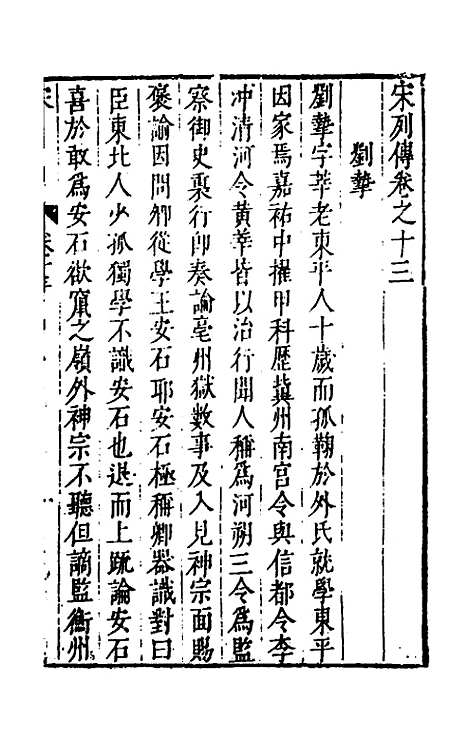 宋列傳卷之十三
劉摯
劉摯字莘老東平人十歲而孤鞠於外氏就學東平
因家焉嘉祐中擢甲科歷冀州南宫令與信都令李
冲清河令黃莘皆以治行聞人稱為河朔三令為監
察御史裏行即奏論亳州獄數事及入見神宗面賜
褒諭因問卿從學王安石耶安石極稱卿器識對曰
臣東北人少孤獨學不識安石也退而上疏論安石
喜於敢為安石欲竄之嶺外神宗不聽但謫監衡州